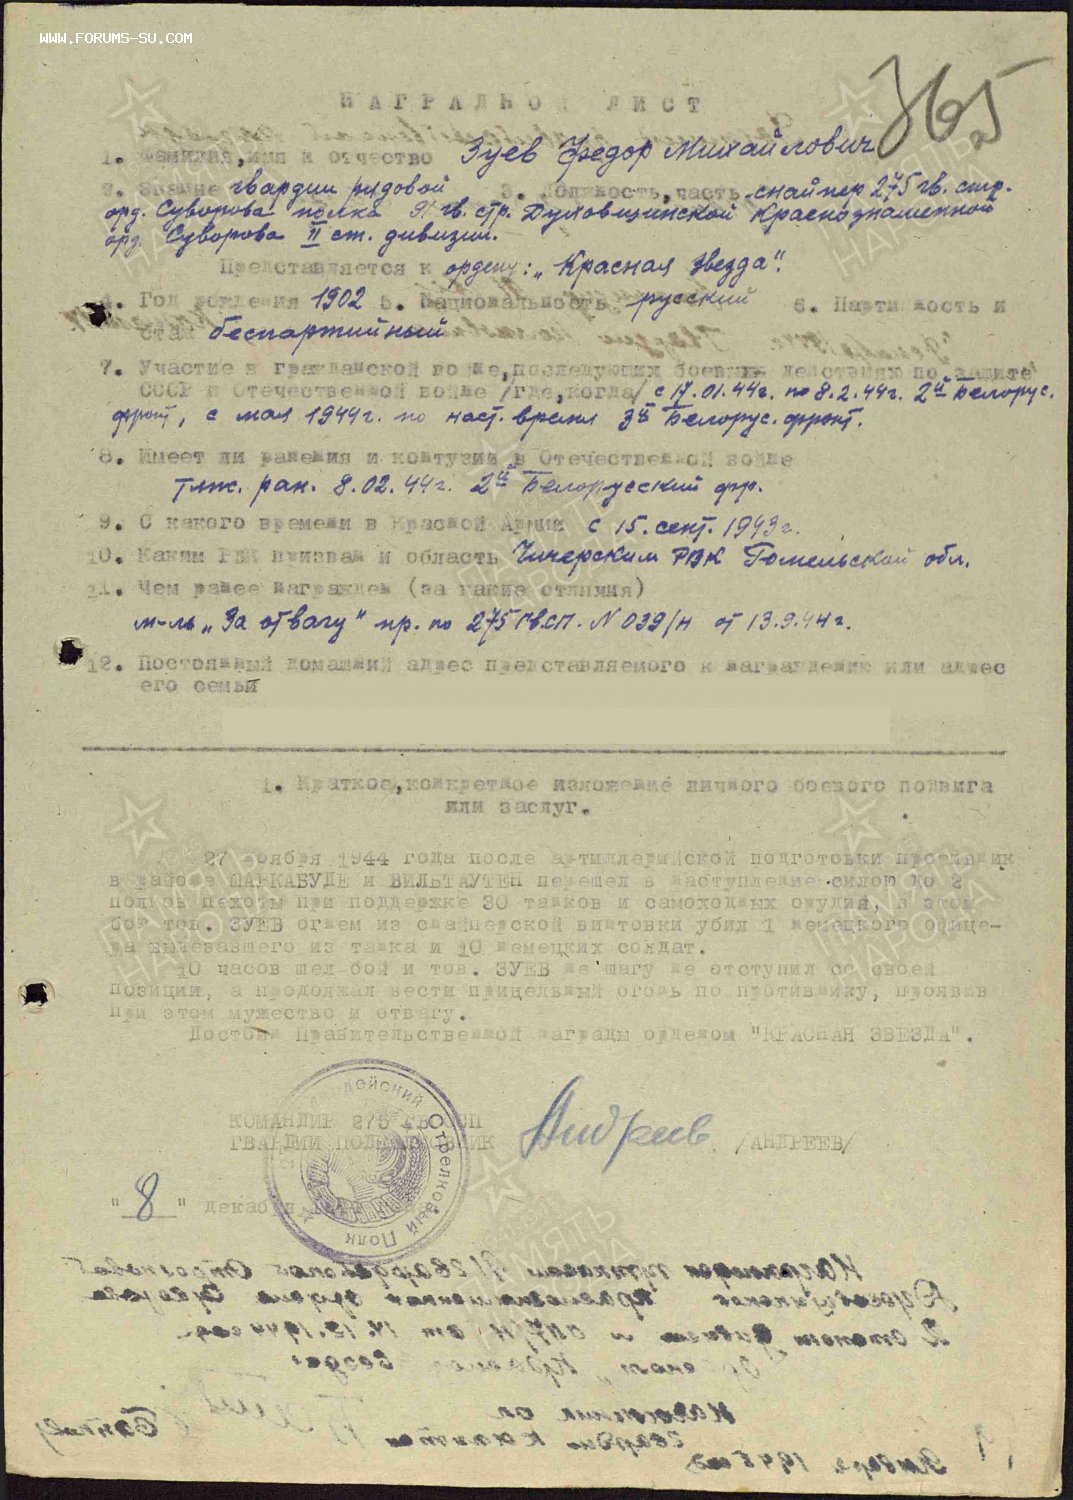 WWW.FORUMS-SU.COM
365
НАГРАДНОЙ ЛИСТ
1. Фамилия, имя и отчество Зуев Федор Михайлович
2. Звание гвардии рядовой 3. Должность, часть снайпер 275 гв. стр.
орд. Суворова полка 91 гв. стр. Духовщинской Краснознаменной
орд. Суворова II ст. дивизии.
Представляется к ордену: „Красная звезда".
4. Год рождения 1902 5. Национальность русский 6. Партийность и
стаж беспартийный
7. Участие в гражданской войне, последующих боевых действиях по защите
СССР и Отечественной войне /где, когда/ с 17.01.44г. по 8.2.44г. 2й Белорус.
фронт, с мая 1944г. по наст. время 3й Белорус. фронт.
8. Имеет ли ранения и контузии в Отечественной войне
тяж. ран. 8.02.44г. 2й Белорусский фр.
9. С какого времени в Красной Армии с 15. сент. 1943г.
10. Каким РВК призван и область Чичерским РВК Гомельской обл.
11. Чем ранее награжден (за какие отличия)
м-ль „За отвагу" пр. по 275 гв.сп. N 039/н от 13.9.44г.
12. Постоянный домашний адрес представляемого к награждению или адрес
его семьи
1. Краткое, конкретное изложение личного боевого подвига
или заслуг.
27 ноября 1944 года после артиллерийской подготовки противник
в районе ШАРКАБУДЕ и ВИЛЬТАУТЕН перешел в наступление силою до 2
полков пехоты при поддержке 30 танков и самоходных орудий, в этом
бою тов. ЗУЕВ огнем из снайперской винтовки убил 1 немецкого офице-
ра вылезавшего из танка и 10 немецких солдат.
10 часов шел бой и тов. ЗУЕВ не шагу не отступил со своей
позиции, а продолжал вести прицельный огонь по противнику, проявив
при этом мужество и отвагу.
Достоин Правительственной награды орденом "КРАСНАЯ ЗВЕЗДА".
КОМАНДИР 275 ГВ ССП
ГВАРДИИ ПОДПОЛКОВНИК Андреев /АНДРЕЕВ/
Стрелковый Полк
"8" декабря
ПАМЯТЬ НАРОДА